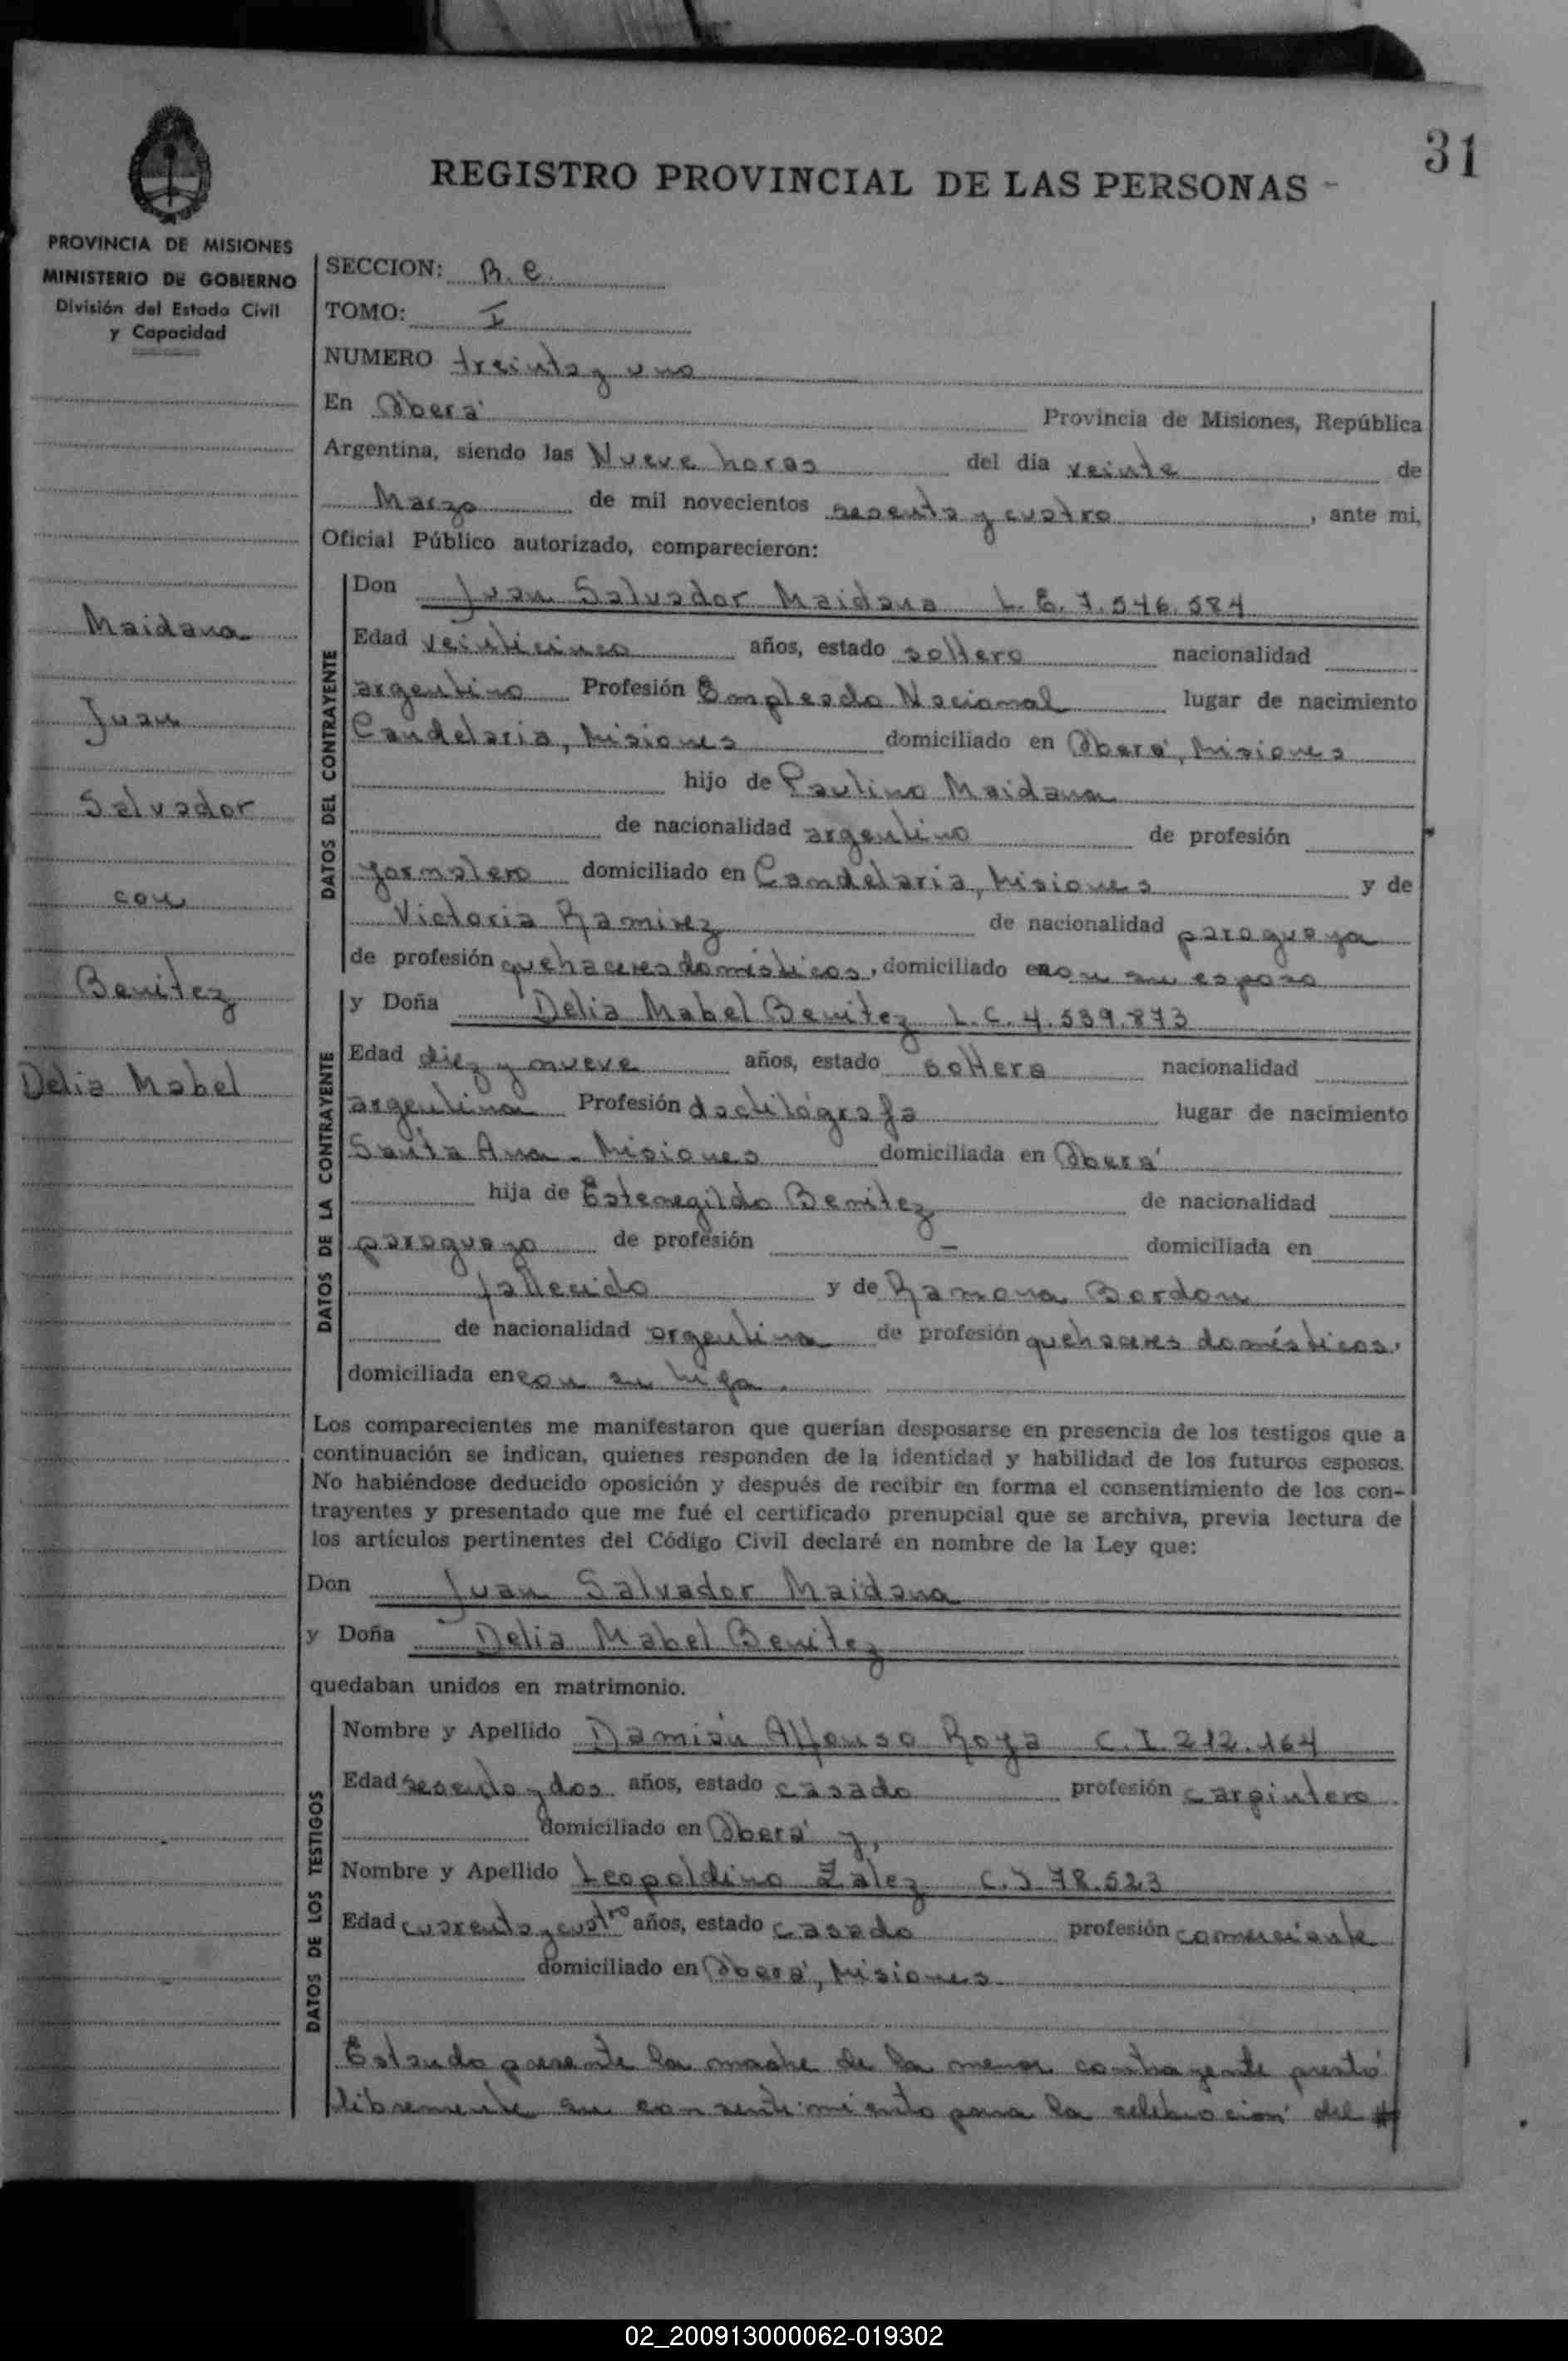 31
REGISTRO PROVINCIAL DE LAS PERSONAS
PROVINCIA DE MISIONES
MINISTERIO DE GOBIERNO
División del Estado Civil
y Capacidad
SECCION: R. C.
TOMO: I
NUMERO treinta y uno
En Oberá Provincia de Misiones, República
Argentina, siendo las Nueve horas del día veinte de
Marzo de mil novecientos sesenta y cuatro, ante mi,
Oficial Público autorizado, comparecieron:
Maidana
Juan
Salvador
con
Benitez
Delia Mabel
DATOS DEL CONTRAYENTE
Don Juan Salvador Maidana L. E. 7.546.584
Edad veinticinco años, estado soltero nacionalidad
argentino Profesión Empleado Nacional lugar de nacimiento
Candelaria, Misiones domiciliado en Oberá, Misiones
hijo de Paulino Maidana
de nacionalidad argentino de profesión
jornalero domiciliado en Candelaria, Misiones y de
Victoria Ramirez de nacionalidad paraguaya
de profesión quehaceres domésticos, domiciliado en con su esposo
DATOS DE LA CONTRAYENTE
y Doña Delia Mabel Benitez L. C. 4.539.873
Edad diez y nueve años, estado soltera nacionalidad
argentina Profesión dactilógrafa lugar de nacimiento
Santa Ana - Misiones domiciliada en Oberá
hija de Estenegildo Benitez de nacionalidad
paraguayo de profesión - domiciliada en
fallecido y de Ramona Bordon
de nacionalidad argentina de profesión quehaceres domésticos,
domiciliada en con su hija.
Los comparecientes me manifestaron que querían desposarse en presencia de los testigos que a
continuación se indican, quienes responden de la identidad y habilidad de los futuros esposos.
No habiéndose deducido oposición y después de recibir en forma el consentimiento de los con-
trayentes y presentado que me fué el certificado prenupcial que se archiva, previa lectura de
los artículos pertinentes del Código Civil declaré en nombre de la Ley que:
Don Juan Salvador Maidana
y Doña Delia Mabel Benitez
quedaban unidos en matrimonio.
DATOS DE LOS TESTIGOS
Nombre y Apellido Damián Alfonso Roya C. I. 212.164
Edad sesenta y dos años, estado casado profesión carpintero
domiciliado en Oberá y,
Nombre y Apellido Leopoldino Zalez C. I. 78.523
Edad cuarenta y cuatro años, estado casado profesión comerciante
domiciliado en Oberá, Misiones
Estando presente la madre de la menor contrayente prestó
libremente su consentimiento para la celebración del #
02_200913000062-019302